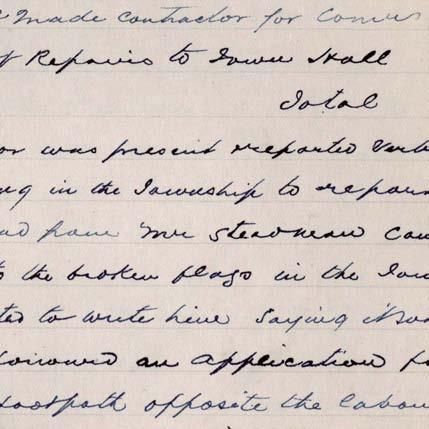 Made contractor for
Repairs to Town Hall
Total
or was present & reported
in the Township to repair
from Mr Steadman
the broken flags in the
to write him saying
an application
footpath opposite the labou